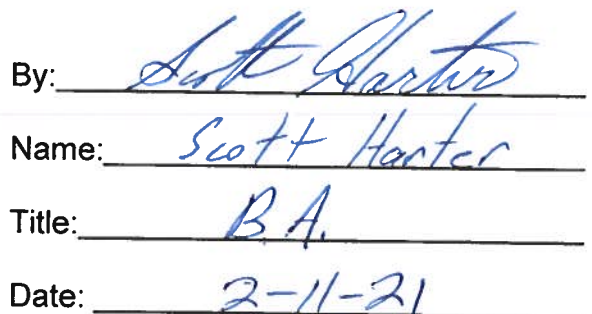 By: Scott Harter
Name: Scott Harter
Title: B.A.
Date: 2-11-21